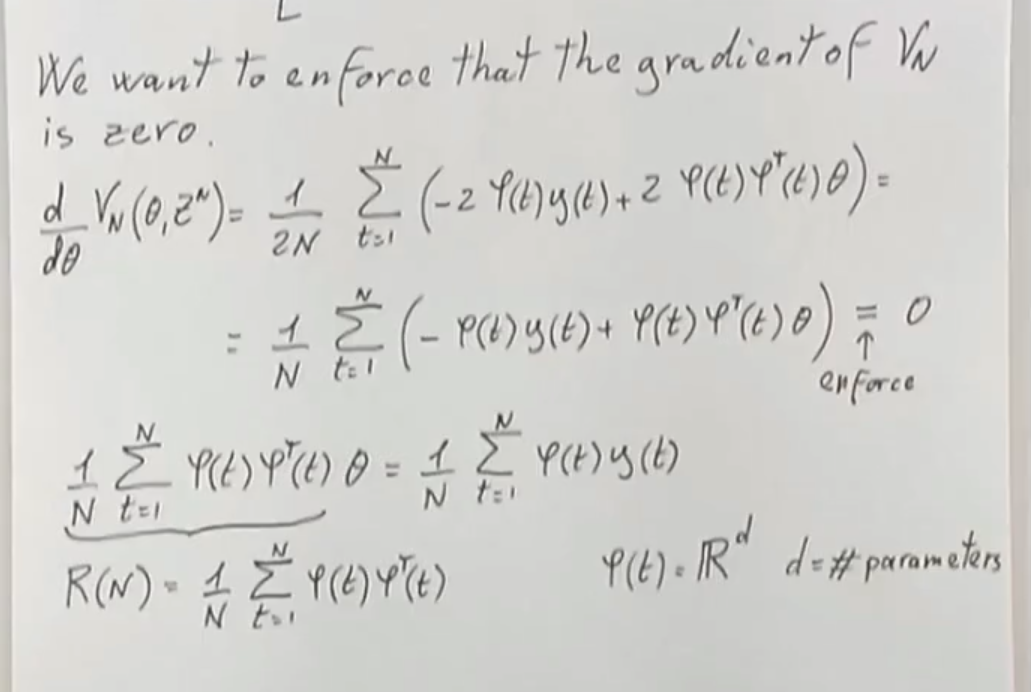 We want to enforce that the gradient of V_N
is zero.
d/dθ V_N(θ, Z^N) = 1/2N ∑_{t=1}^{N} (-2 φ(t)y(t) + 2 φ(t)φ^T(t)θ) =
= 1/N ∑_{t=1}^{N} (- φ(t)y(t) + φ(t)φ^T(t)θ) = 0
↑
enforce
1/N ∑_{t=1}^{N} φ(t)φ^T(t) θ = 1/N ∑_{t=1}^{N} φ(t)y(t)
R(N) = 1/N ∑_{t=1}^{N} φ(t)φ^T(t) φ(t) = ℝ^d d = # parameters